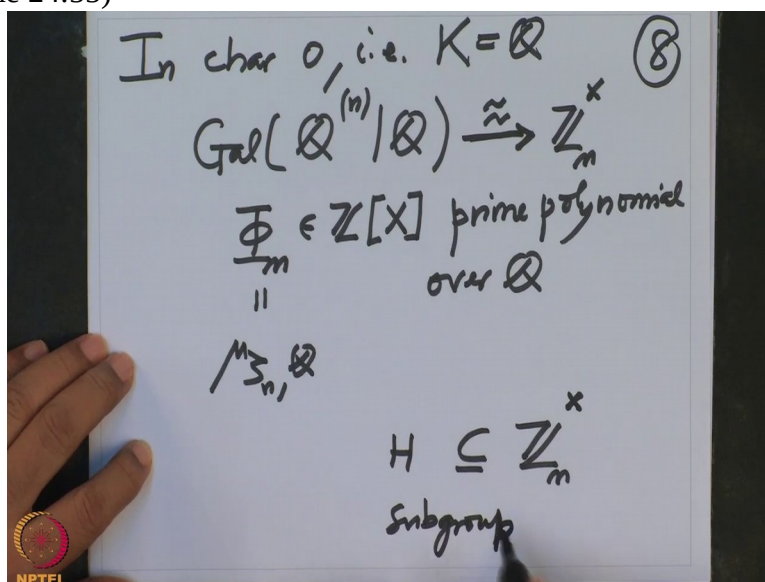 In char 0, i.e. K = ℚ ⑧
Gal(ℚ^(n) | ℚ) ⥲ ℤ_n^×
Φ_n ∈ ℤ[X] prime polynomial
over ℚ
||
μ_ζ_n, ℚ
H ⊆ ℤ_n^×
subgroup
NPTEL